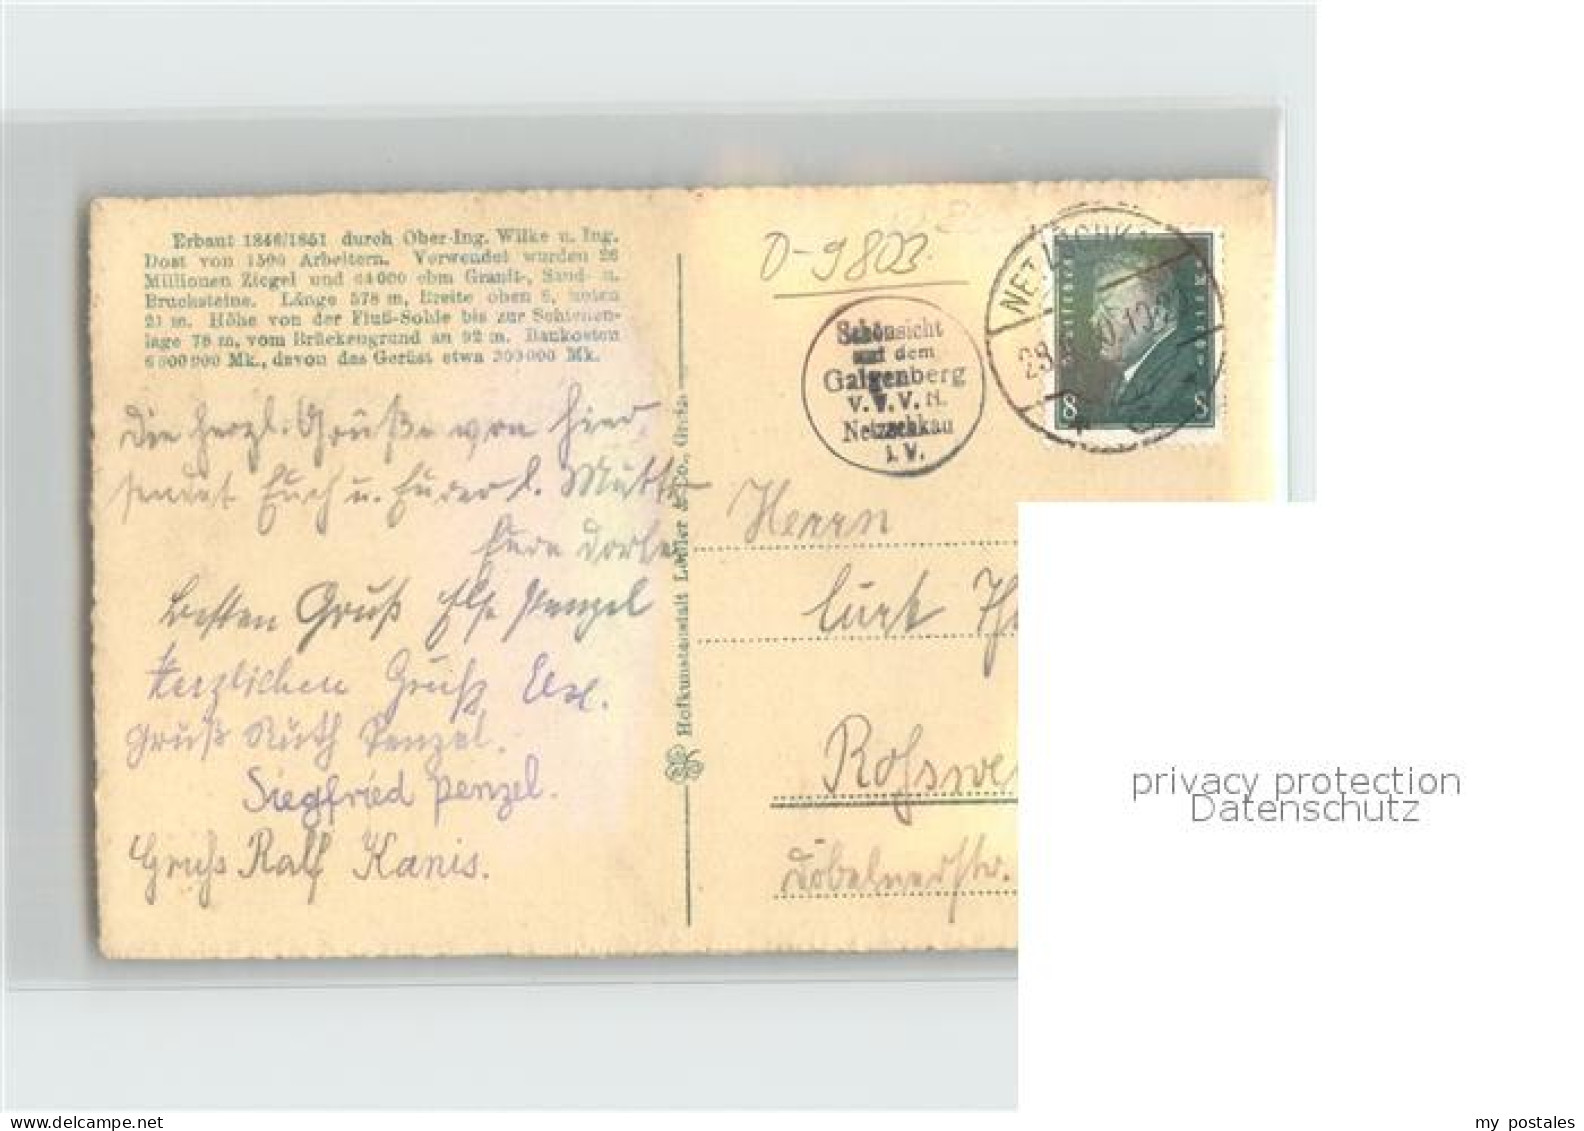 Erbaut 1846/1851 durch Ober-Ing. Wilke u. Ing.
Dost von 1500 Arbeitern. Verwendet wurden 26
Millionen Ziegel und 64000 cbm Granit-, Sand- u.
Brucksteine. Länge 578 m, Breite oben 6, unten
21 m. Höhe von der Fluß-Sohle bis zur Schienen-
lage 78 m, vom Brückengrund an 92 m. Baukosten
6600000 Mk., davon das Gerüst etwa 303000 Mk.
Die herzl. Grüße von hier,
sendet Euch u. Eurer l. Mutter
Eure
Besten Gruß Else Penzel
Herzlichen Gruß
Gruß Ruth Penzel.
Siegfried Penzel.
Gruß Ralf Kanis.
Hofkunstanstalt Löffler & Co., Greiz
D-9803
Schönsicht
auf dem
Galgenberg
V.V.V.N.
Netzschkau
i. V.
NETZSCHKAU
8 8
Herrn
Kurt
Roßwe
Döbelnerstr.
privacy protection
Datenschutz
my postales